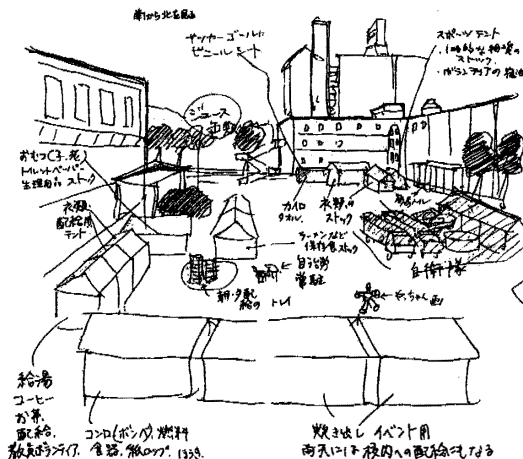 南から北を見る
サッカーゴールに
ビニールシート
スポーツテント
ストック
ボランティアの宿泊
ジュース
おむつ(子、老)
トイレットペーパー
生理用品 ストック
衣類、
配給用
テント
カイロ
タオル
衣類の
ストック
ラーメンなど
保存食ストック
自衛隊
自治労
常駐
朝・夕配
給の トレイ
給湯
コーヒー
お茶、
配給、
教員ボランティア、
コンロ(ボンベ)、燃料
食器、紙コップ、
炊き出し イベント用
雨天には 校内への配給にもなる